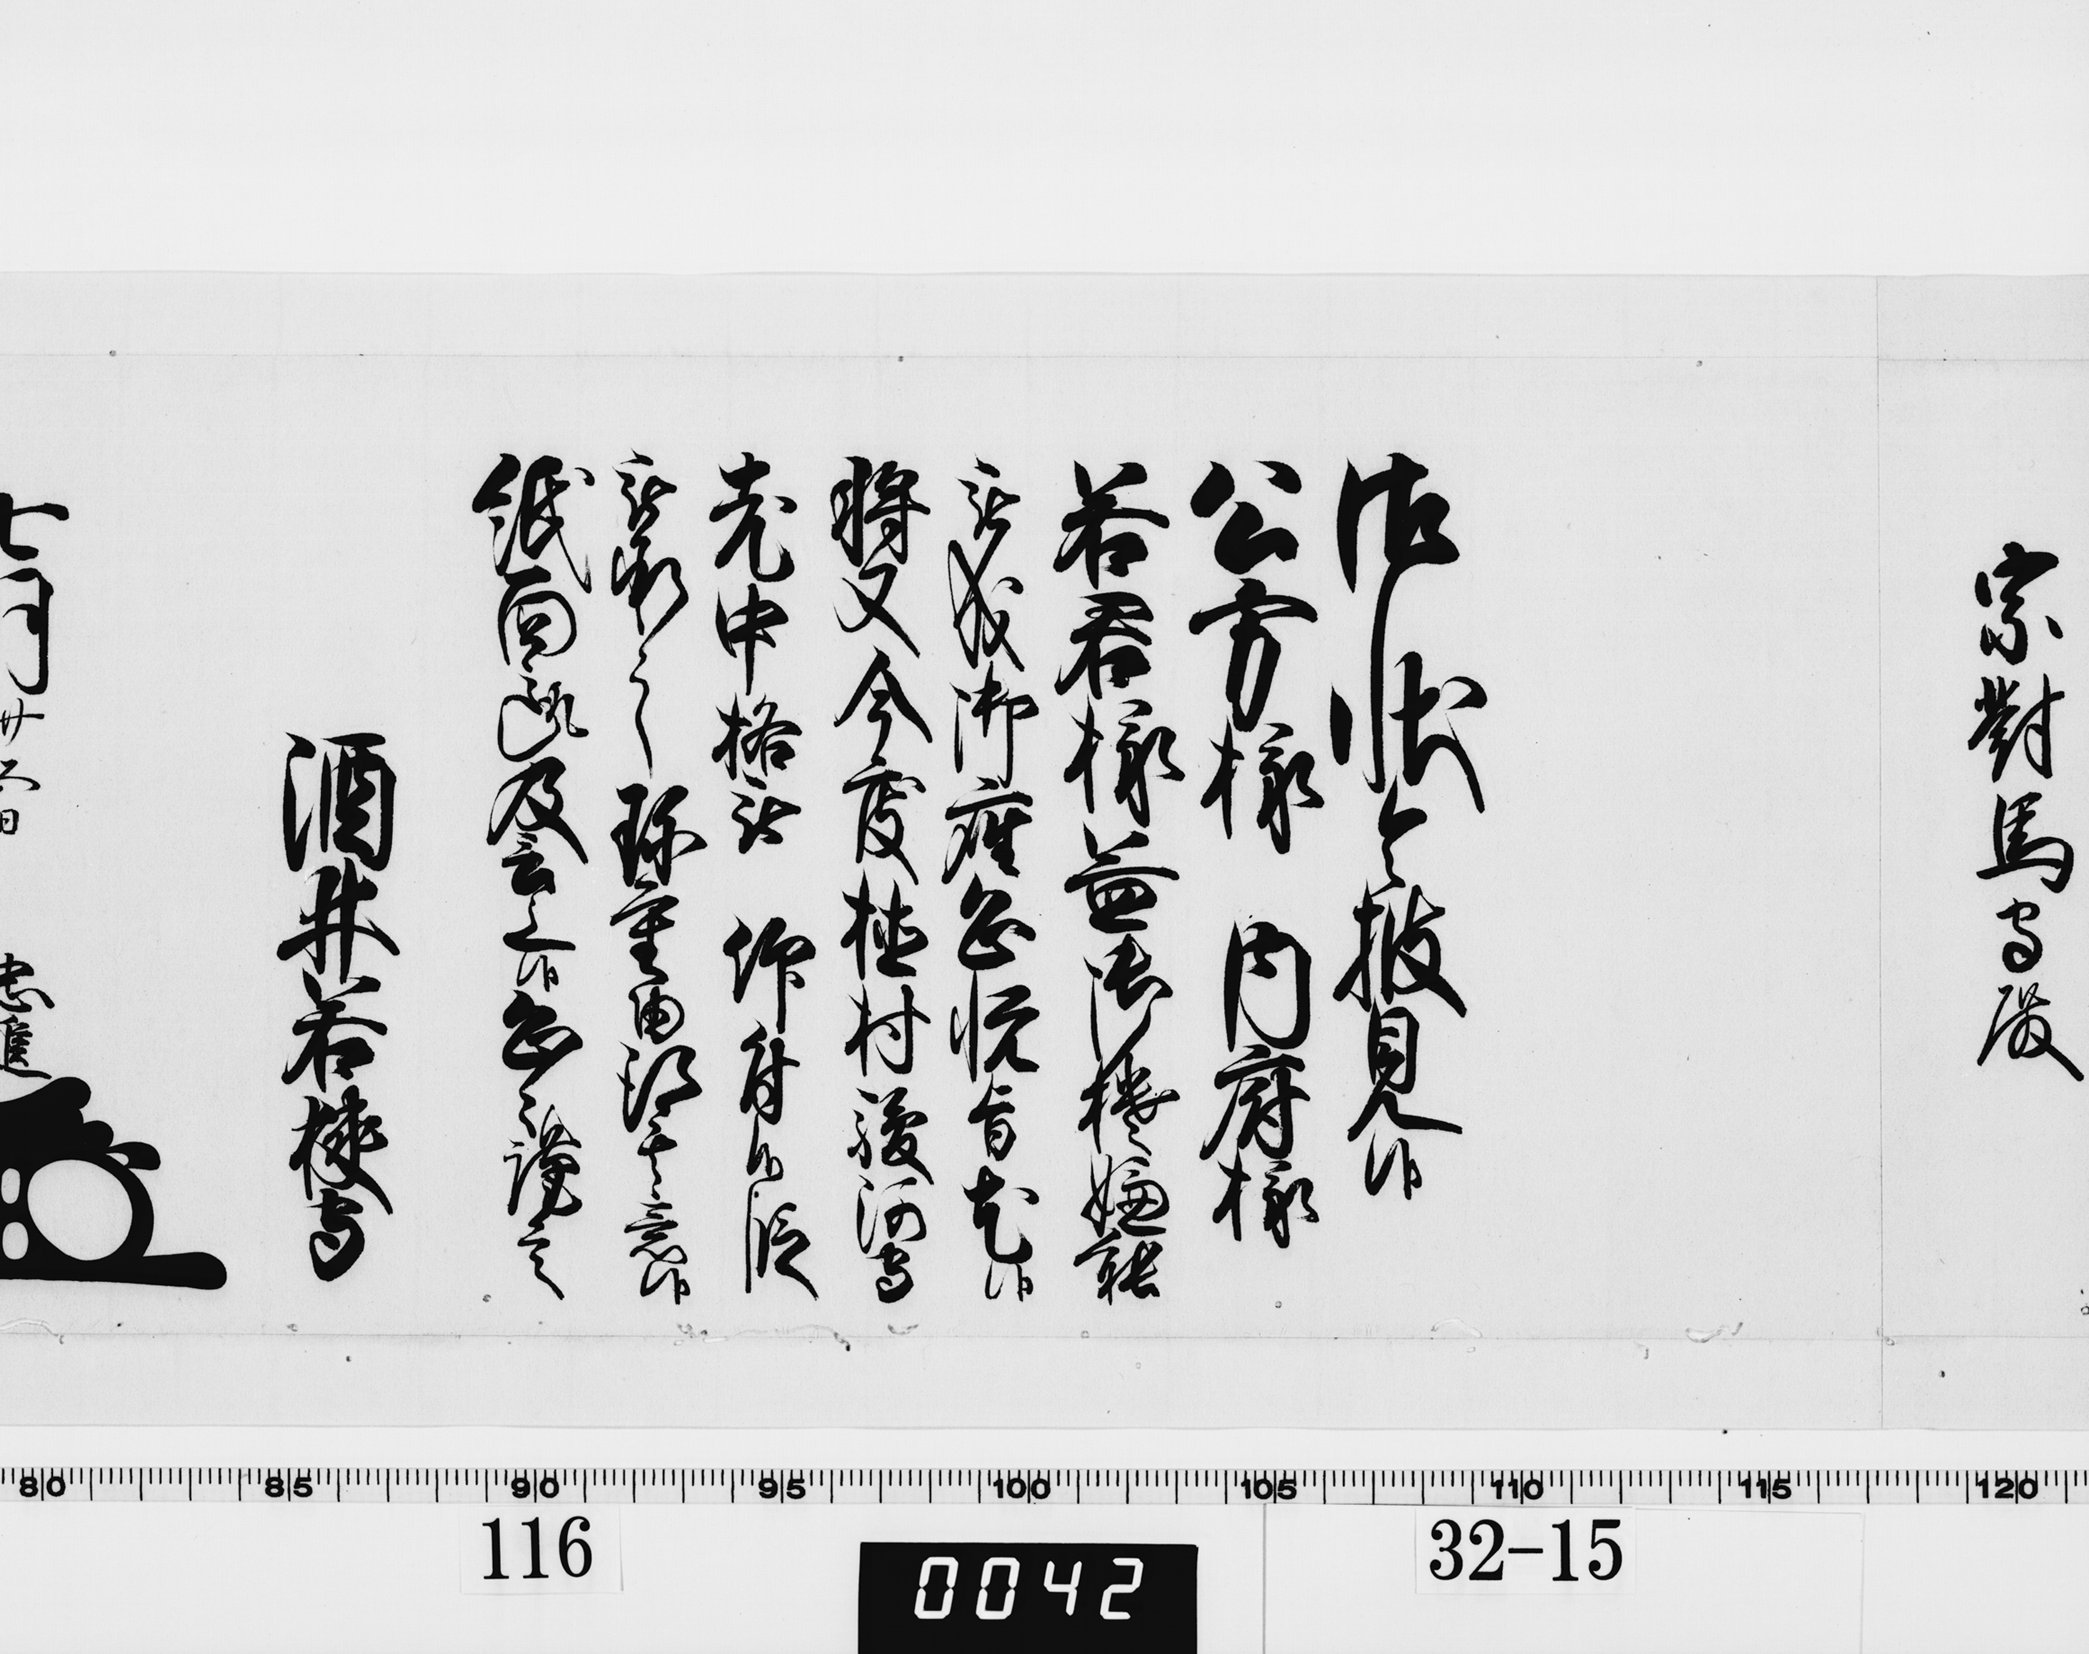 宗對馬守殿
御状令披見候
公方様 内府様
若君様益御機嫌能
被成御座恐悦旨尤候
将又今度植村駿河守
老中格被 仰付候段
被承之珍重由得其意候
紙面趣及言上候恐々謹言
酒井若狭守
七月廿六日 忠進
80 85 90 95 100 105 110 115 120
116
0042
32-15